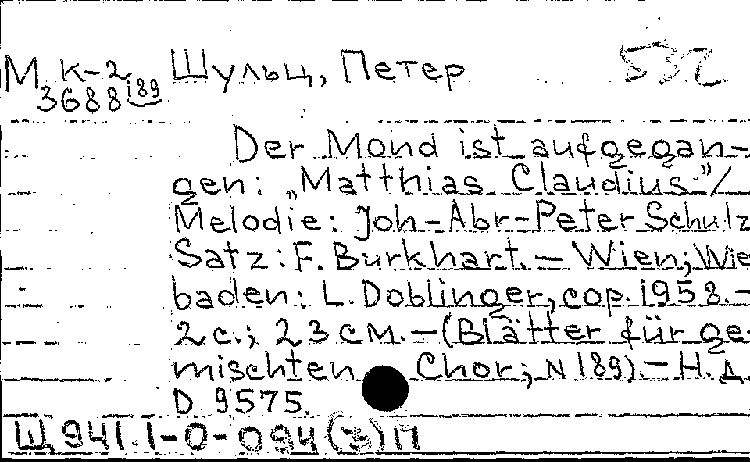 М К-2 189 Шульц, Петер 532
3688
Der Mond ist aufgegan-
gen: „Matthias Claudius"/
Melodie: Joh-Abr-Peter Schulz
Satz: F. Burkhart. — Wien; Wie
baden: L. Doblinger, cop. 1958. —
2 с.; 23 см. — (Blätter für ge
mischten Chor; N 189). — Н. д.
D 9575.
Щ 941.1-0-094(3)П